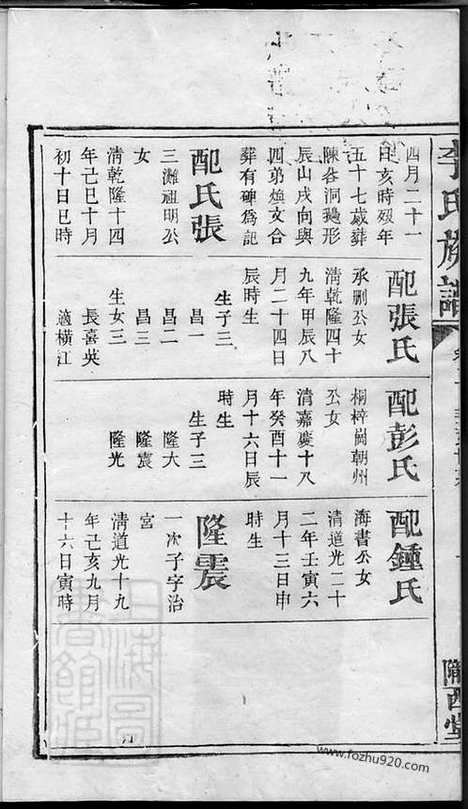 李氏族譜
隴西堂
四月二十一
日亥時歿年
五十七歲葬
陳谷洞鵝形
辰山戌向與
四弟煥文合
葬有碑為記
配氏張
三灘祖明公
女
清乾隆十四
年己巳十月
初十日巳時
配張氏
承刪公女
清乾隆四十
九年甲辰八
月二十四日
辰時生
生子三
昌一
昌二
昌三
生女三
長喜英
適橫江
配彭氏
桐梓崗朝州
公女
清嘉慶十八
年癸酉十一
月十六日辰
時生
生子三
隆大
隆震
隆光
配鍾氏
海書公女
清道光二十
二年壬寅六
月十三日申
時生
隆震
一次子字治
宮
清道光十九
年己亥九月
十六日寅時
上海圖
書館藏
www.fozhu920.com